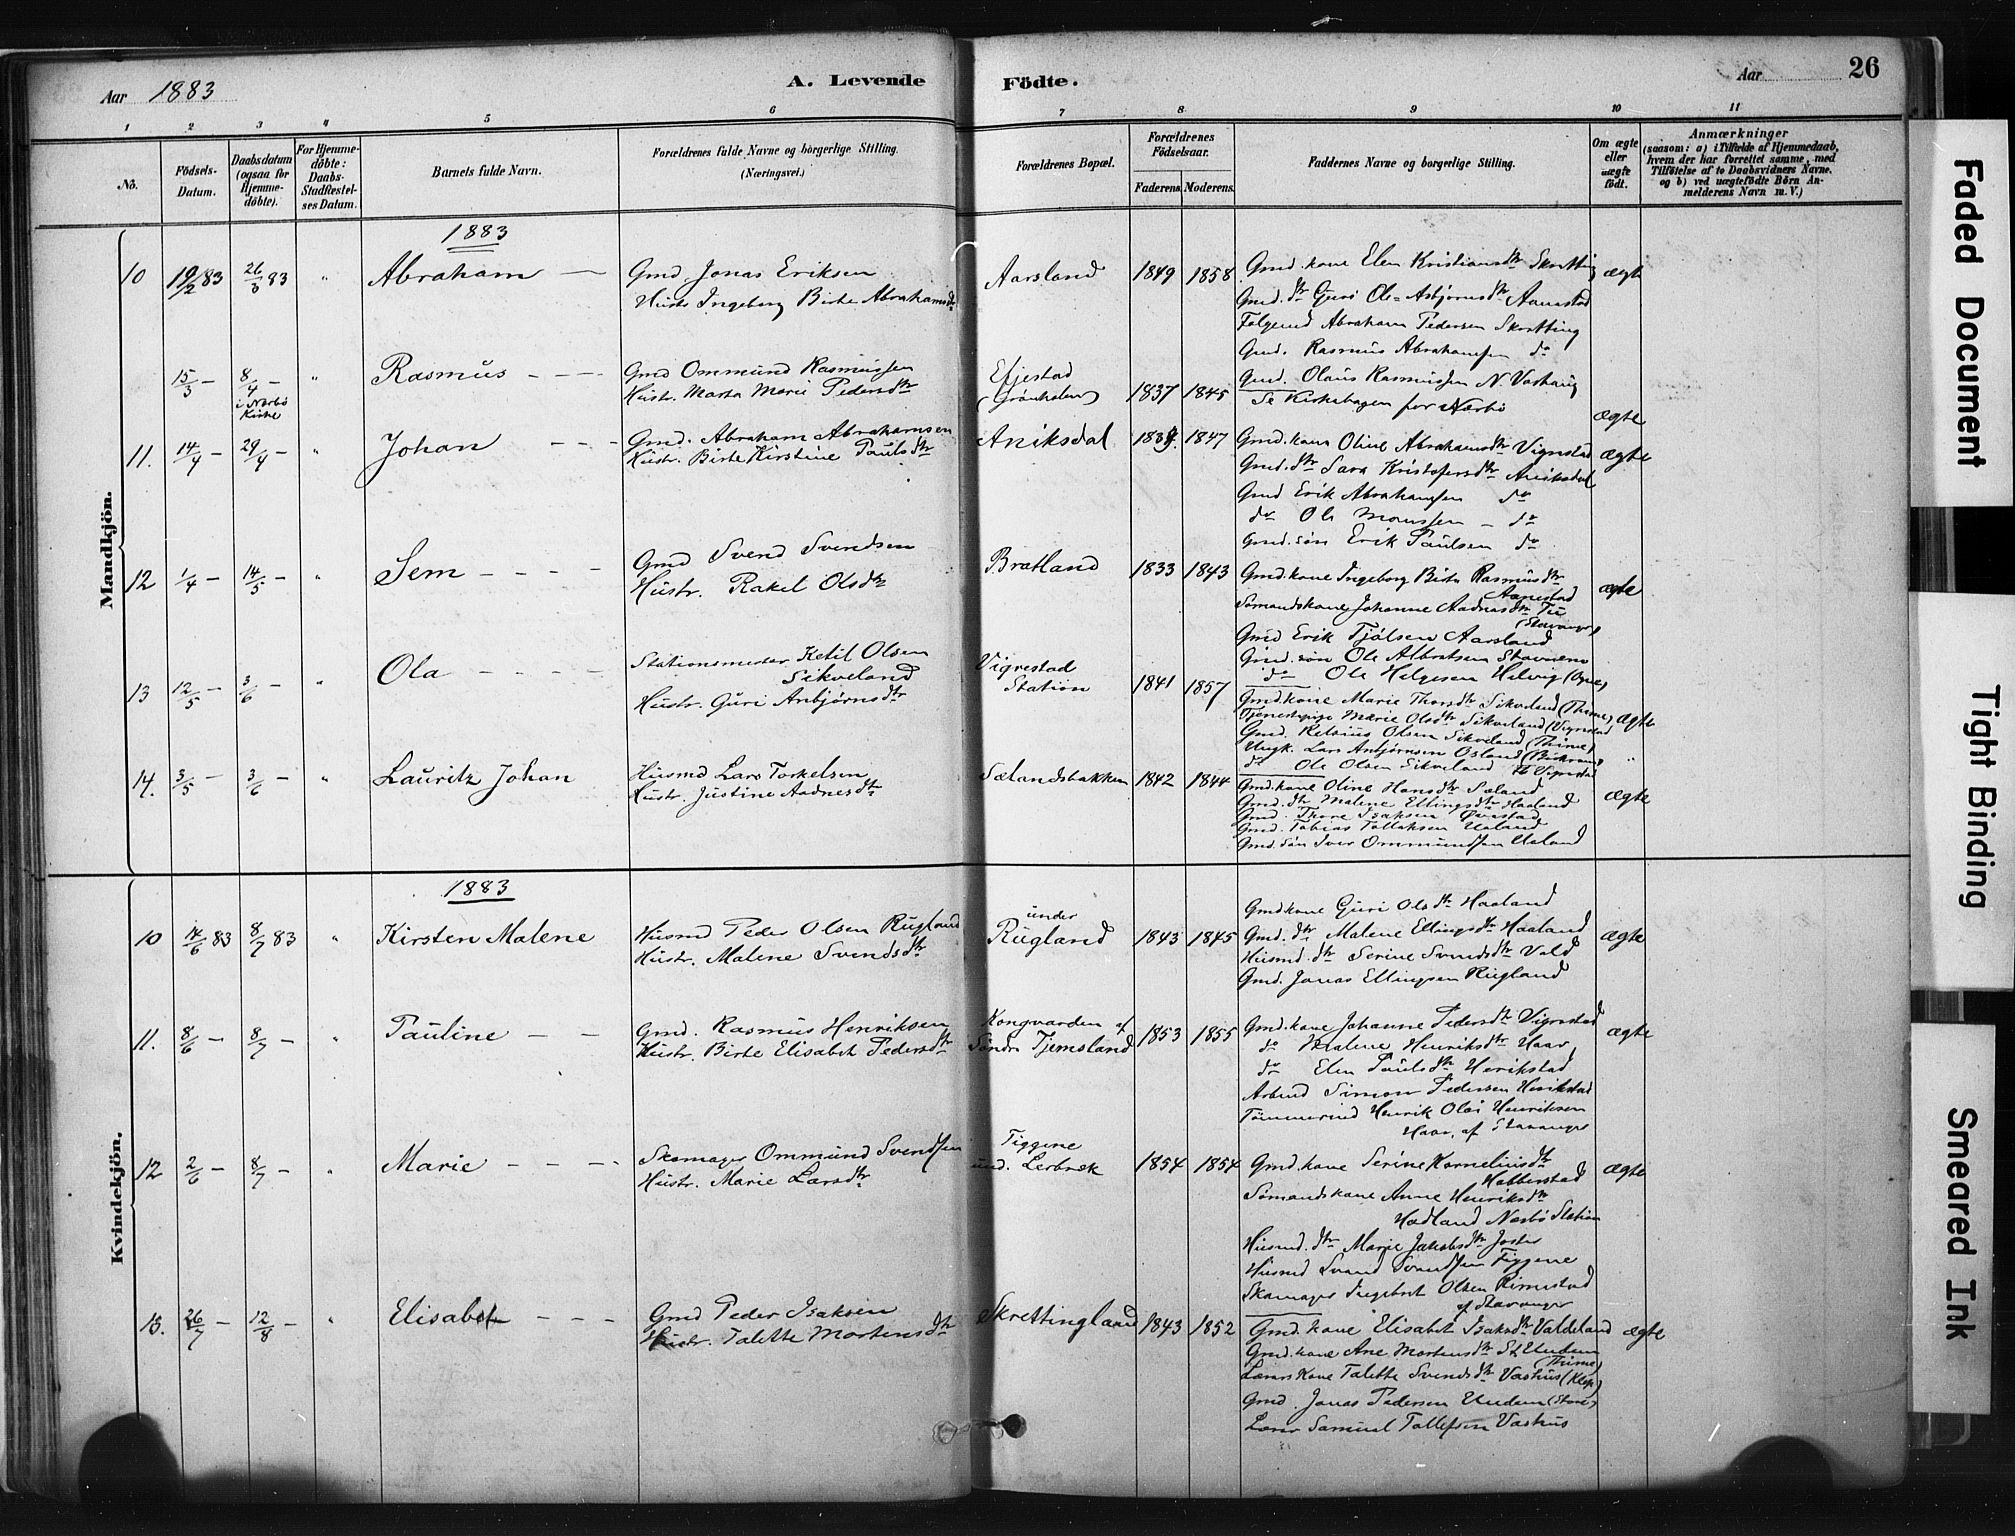 Aar 1883
A. Levende Födte.
Aar
26
1 2 3 4 5 6 7 8 9 10 11
No.
Födsels-Datum.
Daabsdatum (ogsaa for Hjemmedöbte).
For Hjemmedöbte: Daabs-Stadfæstelses Datum.
Barnets fulde Navn.
Forældrenes fulde Navne og borgerlige Stilling. (Næringsvei.)
Forældrenes Bopæl.
Forældrenes Födselsaar.
Faderens. Moderens.
Faddernes Navne og borgerlige Stilling.
Om ægte eller uægte födt.
Anmærkninger
(saasom: a) i Tilfælde af Hjemmedaab, hvem der har forrettet samme, med Tilföielse af to Daabsvidners Navne, og b) ved uægtefödte Börn Anmelderens Navn m. V.)
Mandkjön.
1883
10 19/2 83 26/3 83 " Abraham
Gmd Jonas Eriksen
Hustr. Ingeborg Birte Abrahamsdtr
Aarsland 1849 1858
Gmd. kone Elen Kristiansdtr Skretting
Gmd. dtr Guri Ols Asbjørnsdtr Aanestad
Følgemd Abraham Pedersen Skretting
Gmd. Rasmus Abrahamsen do
Gmd. Olaus Rasmussen N. Varhaug
ægte
15/3 - 8/4 - i Nærbø Kirke " Rasmus
Gmd Ommund Rasmussen
Hustr. Marta Marie Pedersdtr
Efjestad
(Grønholen)
1837 1845
Se Kirkebogen for Nærbø
ægte
11. 14/4 - 29/4 - " Johan
Gmd. Abraham Abrahamsen
Hustr. Birte Kirstine Paulsdtr
Aniksdal 1839. 1847
Gmd. kone Oline Abrahamsdtr Vigrestad
Gmd. dtr Sara Kristofersdtr Aniksdal
Gmd Erik Abrahamsen do
do Ole Monssen - do
Gmd. søn Erik Paulsen do
ægte
12 1/4 - 14/5 - " Sem
Gmd Svend Svendsen
Hustr. Rakel Olsdtr
Bratland 1833 1843
Gmd. kone Ingeborg Birte Rasmusdtr
Aanestad
Sømandskone Johanne Aadnesdtr Tu
(Stavanger)
Gmd Erik Tjølsen Aarsland
Gmd. søn Ole Albretsen Stavnem
do Ole Helgesen Helvig (Ogne)
ægte
13 12/5 - 3/6 - " Ola
Stationsmester Ketil Olsen
Sikveland
Hustr. Guri Anbjørnsdtr
Vigrestad
Station
1841 1857
Gmd. kone Marie Thorsdtr Sikveland (Thime)
Tjenestepige Marie Olsdtr Sikveland (Vigrestad
Gmd. Relsius Olsen Sikveland (Thime)
Ungk. Lars Anbjørnsen Osland
do Ole Olsen Sikveland
ægte
14. 3/5 - 3/6 - " Lauritz Johan
Husmd Lars Torkelsen
Hustr. Justine Aadnesdtr
Sælandsbakken 1842 1844
Gmd. kone Oline Hansdtr Sæland
Gmd. dtr Malene Ellingsdtr Haaland
Gmd. Thore Isaksen
Gmd. Tobias Tollaksen Ueland
Gmd. søn Iver Ommundsen Ueland
ægte
Kvindekjön.
1883
10 14/6 83 8/7 83 " Kirsten Malene
Husmd Peder Olsen Rugland
Hustr. Malene Svendsdtr
under
Rugland
1843 1845
Gmd kone Guri Olsdtr Haaland
Gmd. dtr Malene Ellingsdtr Haaland
Husmd. dtr Serine Svendsdtr Vold
Gmd. Jonas Ellingsen Rugland
ægte
11. 8/6 - 8/7 - " Pauline
Gmd. Rasmus Henriksen
Hustr. Birte Elisabet Pedersdtr
Kongvarden af
Søndre Tjemsland
1853 1855
Gmd. kone Johanne Pedersdtr Vigrestad
do Malene Henriksdtr Haar
do Elen Paulsdtr Herikstad
Arbmd Simon Pedersen Herikstad
Tømmermd Henrik Olai Henriksen
Haar, af Stavanger
ægte
12 2/6 - 8/7 - " Marie
Skomager Ommund Svendsen
Hustr. Marie Larsdtr
Tiggene
und. Lerbrek
1854 1854
Gmd. kone Serine Korneliusdtr
Hobberstad
Sømandskone Anne Henriksdtr
Hadland Nærbø Station
Husmd. dtr Marie Jakobsdtr
Husmd Svend Svendsen Tiggene
Skomager Ingebret Olsen Rimestad
af Stavanger
ægte
13. 26/7 - 12/8 - " Elisabet
Gmd Peder Isaksen
Hustr. Talette Mortensdtr
Skrettingland 1843 1852
Gmd. kone Elisabet Isaksdtr Valdeland
Gmd. kone Ane Mortensdtr St. Undem
(Thime)
Lærers Kone Talette Svendsdtr Vashus (Klep)
Gmd. Jonas Pedersen Undem (Store)
Lærer Samuel Tollefsen Vashus
ægte
Faded Document
Tight Binding
Smeared Ink